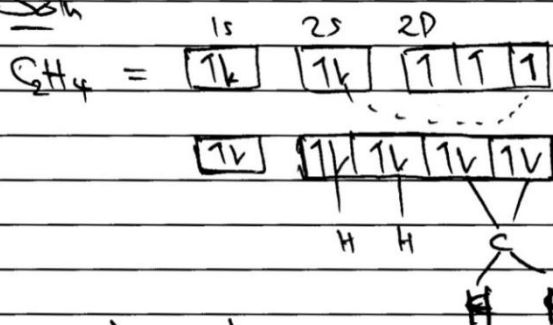 Soln
1s 2s 2P
C2H4 = 1L 1L 1 1 1
1L 1L 1L 1L 1L
H H C